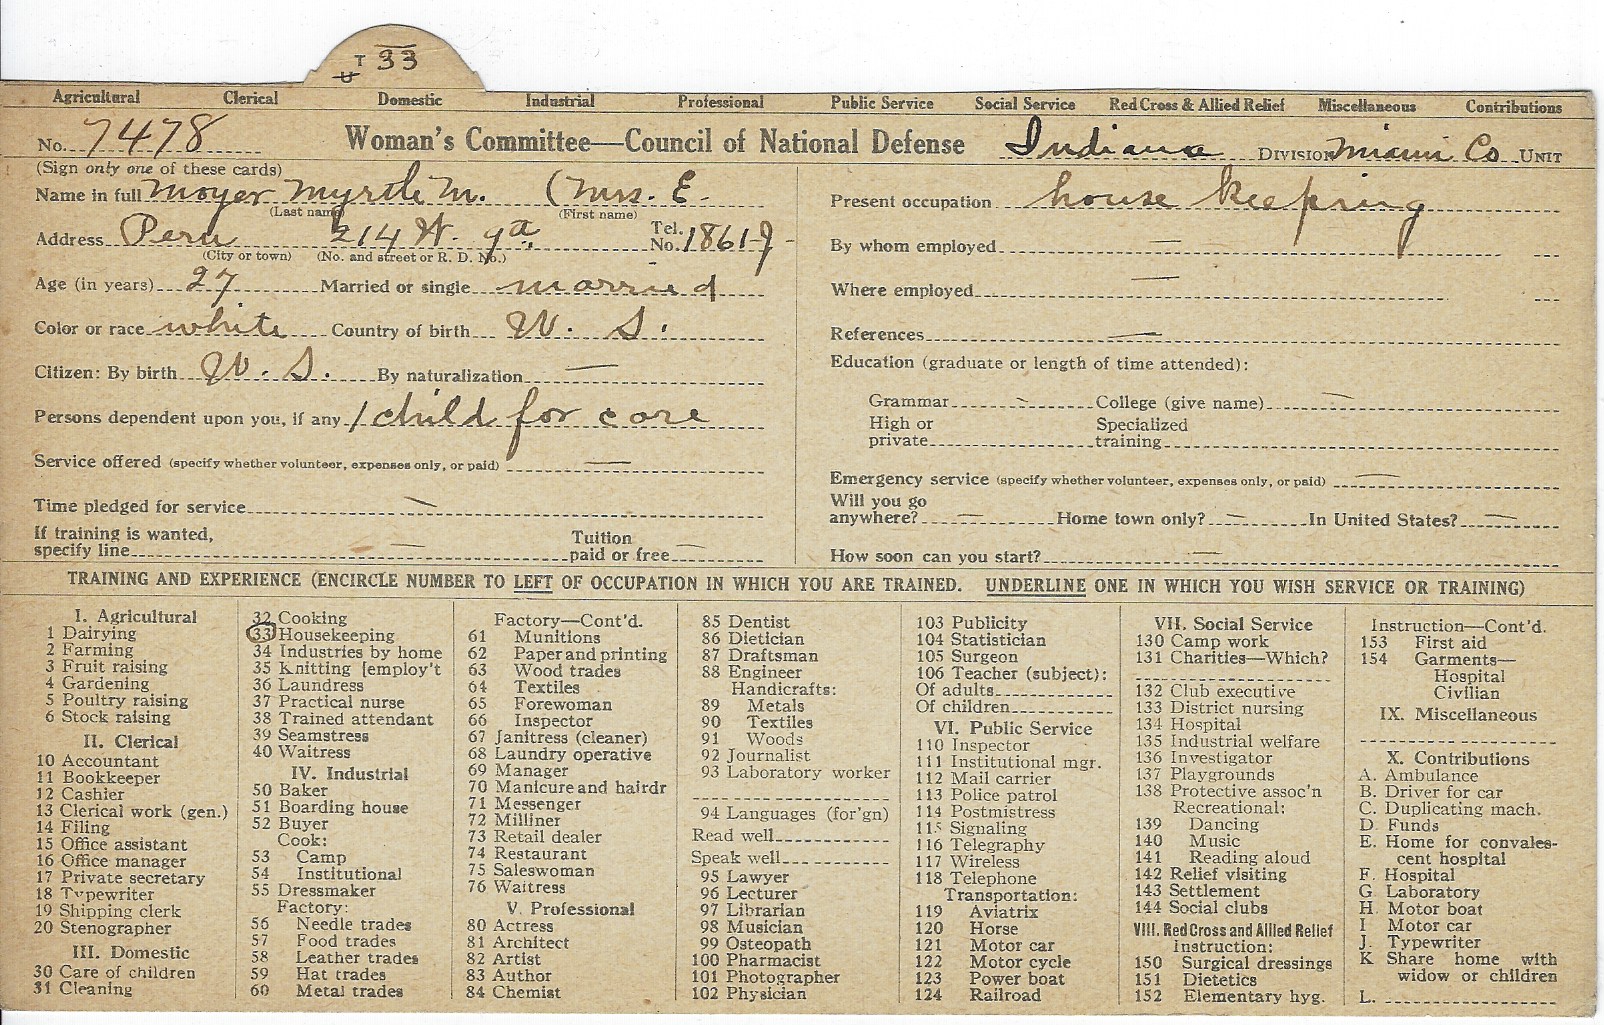 T 33
U
Agricultural Clerical Domestic Industrial Professional Public Service Social Service Red Cross & Allied Relief Miscellaneous Contributions
No. 7478 Woman's Committee—Council of National Defense Indiana Division Miami Co Unit
(Sign only one of these cards)
Name in full Moyer Myrtle M. (Mrs. E.
(Last name) (First name)
Address Peru 214 W. 9th Tel. No. 1861-J
(City or town) (No. and street or R. D. No.)
Age (in years) 27 Married or single married
Color or race white Country of birth U. S.
Citizen: By birth U. S. By naturalization —
Persons dependent upon you, if any 1 child for care
Service offered (specify whether volunteer, expenses only, or paid) —
Time pledged for service —
If training is wanted,
specify line — Tuition paid or free —
Present occupation house keeping
By whom employed —
Where employed —
References —
Education (graduate or length of time attended):
Grammar — College (give name) —
High or private Specialized training
Emergency service (specify whether volunteer, expenses only, or paid) —
Will you go anywhere? — Home town only? — In United States? —
How soon can you start? —
TRAINING AND EXPERIENCE (ENCIRCLE NUMBER TO LEFT OF OCCUPATION IN WHICH YOU ARE TRAINED. UNDERLINE ONE IN WHICH YOU WISH SERVICE OR TRAINING)
I. Agricultural
1 Dairying
2 Farming
3 Fruit raising
4 Gardening
5 Poultry raising
6 Stock raising
II. Clerical
10 Accountant
11 Bookkeeper
12 Cashier
13 Clerical work (gen.)
14 Filing
15 Office assistant
16 Office manager
17 Private secretary
18 Typewriter
19 Shipping clerk
20 Stenographer
III. Domestic
30 Care of children
31 Cleaning
32 Cooking
33 Housekeeping
34 Industries by home
35 Knitting [employ't
36 Laundress
37 Practical nurse
38 Trained attendant
39 Seamstress
40 Waitress
IV. Industrial
50 Baker
51 Boarding house
52 Buyer
Cook:
53 Camp
54 Institutional
55 Dressmaker
Factory:
56 Needle trades
57 Food trades
58 Leather trades
59 Hat trades
60 Metal trades
Factory—Cont'd.
61 Munitions
62 Paper and printing
63 Wood trades
64 Textiles
65 Forewoman
66 Inspector
67 Janitress (cleaner)
68 Laundry operative
69 Manager
70 Manicure and hairdr
71 Messenger
72 Milliner
73 Retail dealer
74 Restaurant
75 Saleswoman
76 Waitress
V. Professional
80 Actress
81 Architect
82 Artist
83 Author
84 Chemist
85 Dentist
86 Dietician
87 Draftsman
88 Engineer
Handicrafts:
89 Metals
90 Textiles
91 Woods
92 Journalist
93 Laboratory worker
94 Languages (for'gn)
Read well
Speak well
95 Lawyer
96 Lecturer
97 Librarian
98 Musician
99 Osteopath
100 Pharmacist
101 Photographer
102 Physician
103 Publicity
104 Statistician
105 Surgeon
106 Teacher (subject):
Of adults
Of children
VI. Public Service
110 Inspector
111 Institutional mgr.
112 Mail carrier
113 Police patrol
114 Postmistress
115 Signaling
116 Telegraphy
117 Wireless
118 Telephone
Transportation:
119 Aviatrix
120 Horse
121 Motor car
122 Motor cycle
123 Power boat
124 Railroad
VII. Social Service
130 Camp work
131 Charities—Which?
132 Club executive
133 District nursing
134 Hospital
135 Industrial welfare
136 Investigator
137 Playgrounds
138 Protective assoc'n
Recreational:
139 Dancing
140 Music
141 Reading aloud
142 Relief visiting
143 Settlement
144 Social clubs
VIII. Red Cross and Allied Relief
Instruction:
150 Surgical dressings
151 Dietetics
152 Elementary hyg.
Instruction—Cont'd.
153 First aid
154 Garments—
Hospital
Civilian
IX. Miscellaneous
X. Contributions
A. Ambulance
B. Driver for car
C. Duplicating mach.
D. Funds
E. Home for convales-
cent hospital
F. Hospital
G. Laboratory
H. Motor boat
I Motor car
J. Typewriter
K Share home with
widow or children
L.